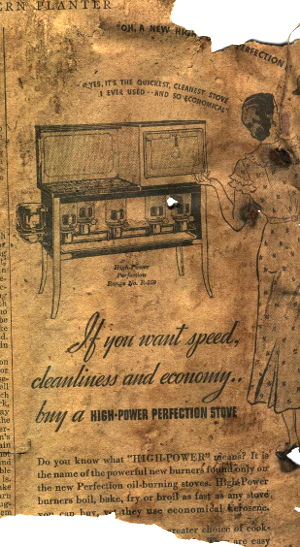 ERN PLANTER
"OH, A NEW HIGH
PERFECTION
"YES, IT'S THE QUICKEST, CLEANEST STOVE
I EVER USED--AND SO ECONOMICAL"
High-Power
Perfection
Range No. R-559
If you want speed,
cleanliness and economy..
buy a HIGH-POWER PERFECTION STOVE
Do you know what "HIGH-POWER" means? It is
the name of the powerful new burners found only on
the new Perfection oil-burning stoves. High-Power
burners boil, bake, fry or broil as fast as any stove
you can buy, yet they use economical kerosene.
greater choice of cook-
are easy